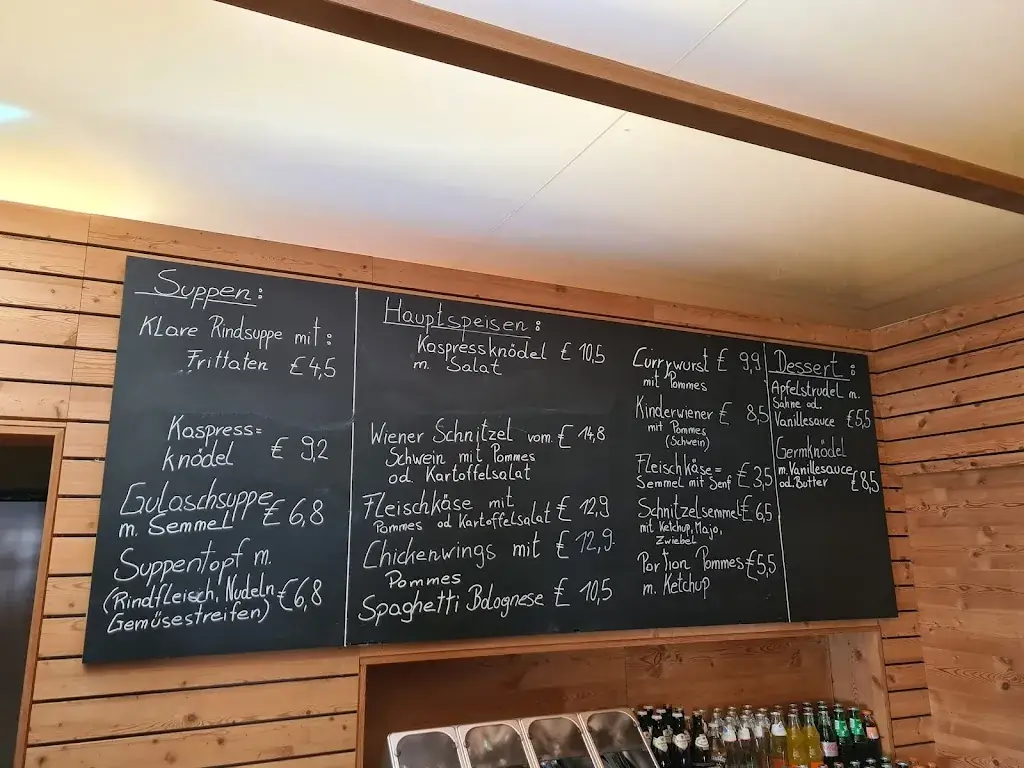 Suppen:
Klare Rindsuppe mit:
Frittaten €4,5
Kaspress=
knödel € 9,2
Gulaschsuppe
m. Semmel €6,8
Suppentopf m.
(Rindfleisch, Nudeln €6,8
Gemüsestreifen)
Hauptspeisen:
Kaspressknödel € 10,5
m. Salat
Wiener Schnitzel vom € 14,8
Schwein mit Pommes
od Kartoffelsalat
Fleischkäse mit
Pommes od Kartoffelsalat € 12,9
Chickenwings mit € 12,9
Pommes
Spaghetti Bolognese € 10,5
Currywurst € 9,9
mit Pommes
Kinderwiener € 8,5
mit Pommes
(Schwein)
Fleischkäse=
Semmel mit Senf € 3,5
Schnitzelsemmel € 6,5
mit Ketchup, Majo,
Zwiebel
Portion Pommes €5,5
m. Ketchup
Dessert:
Apfelstrudel m.
Sahne od.
Vanillesauce €5,5
Germknödel
m. Vanillesauce
od. Butter €8,5